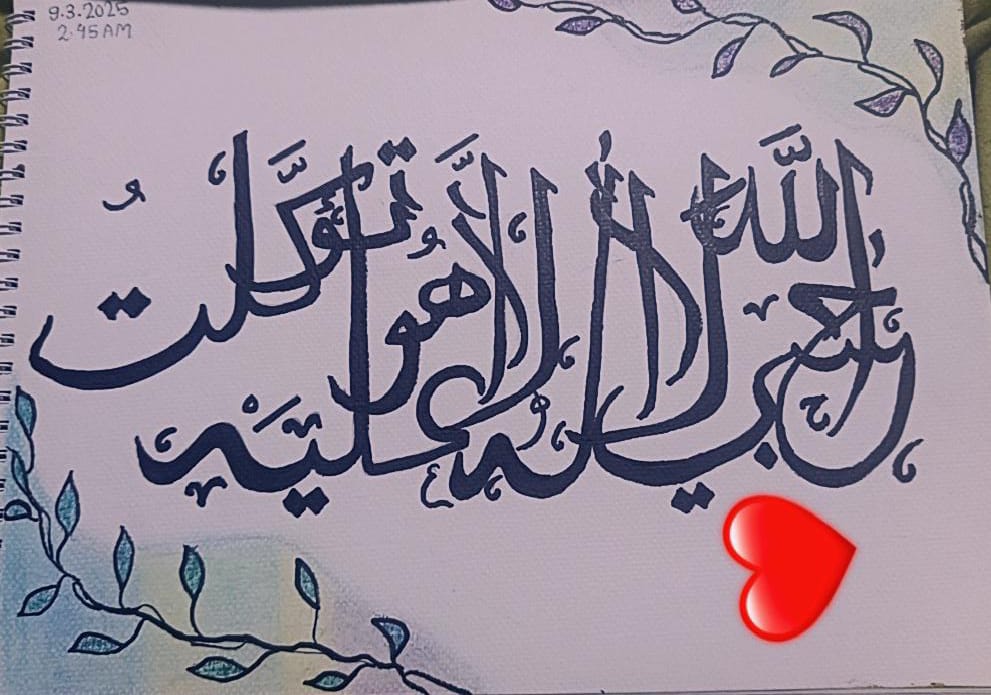 9.3.2025
2:45 AM
حسبي الله لا إله إلا هو عليه توكلت